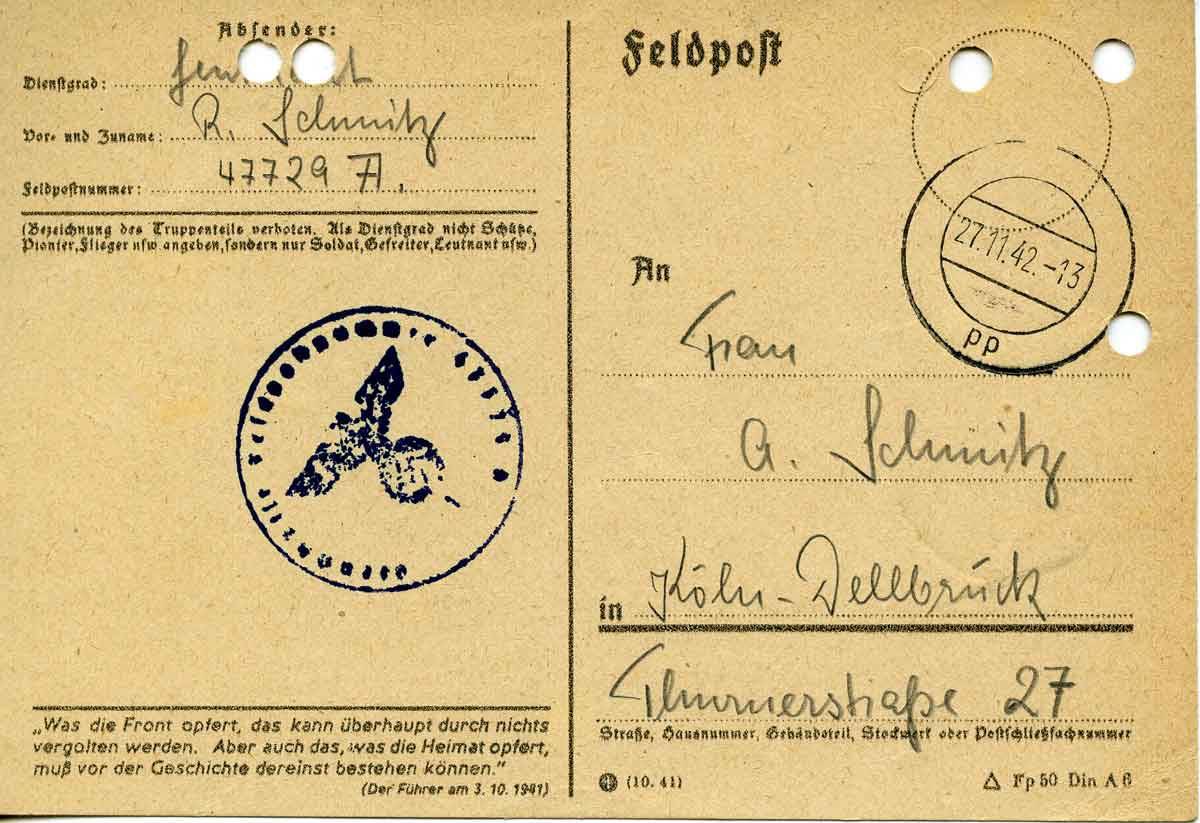 Absender:
Dienstgrad:
Vor- und Zuname: R. Schmitz
Feldpostnummer: 47729 A.
(Bezeichnung des Truppenteils verboten. Als Dienstgrad nicht Schütze,
Pionier, Flieger usw. angeben, sondern nur Soldat, Gefreiter, Leutnant usw.)
„Was die Front opfert, das kann überhaupt durch nichts
vergolten werden. Aber auch das, was die Heimat opfert,
muß vor der Geschichte dereinst bestehen können.“
(Der Führer am 3. 10. 1941)
Feldpost
27.11.42.-13
pp
An
Frau
A. Schmitz
in Köln-Dellbrück
Thurnerstraße 27
Straße, Hausnummer, Gebäudeteil, Stockwerk oder Postschließfachnummer
(10. 41)
Fp 50 Din A 6